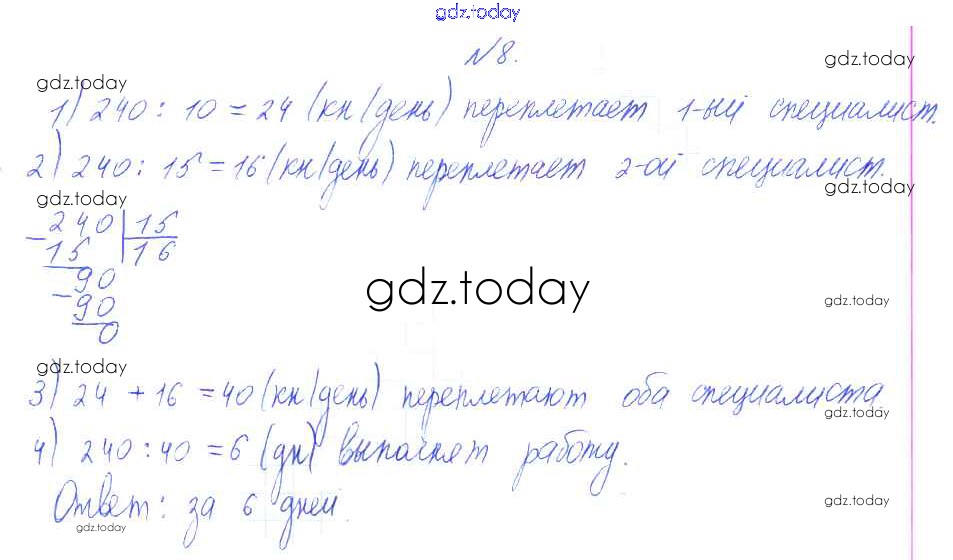 gdz.today
№8.
gdz.today
gdz.today
1) 240 : 10 = 24 (кн/день) переплетает 1-ый специалист.
2) 240 : 15 = 16 (кн/день) переплетает 2-ой специалист.
gdz.today
gdz.today
240 | 15
- 15 | 16
90
- 90
0
gdz.today
gdz.today
gdz.today
3) 24 + 16 = 40 (кн/день) переплетают оба специалиста
gdz.today
4) 240 : 40 = 6 (дн) выполнят работу.
Ответ: за 6 дней.
gdz.today
gdz.today